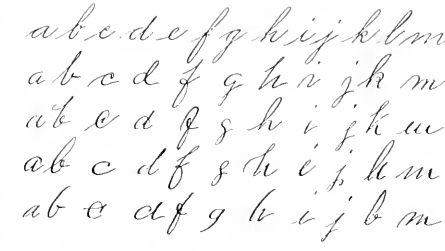 a b c d e f g h i j k l m
a b c d f g h i j k m
a b c d f g h i j k m
a b c d f g h i j k m
a b c d f g h i j b m